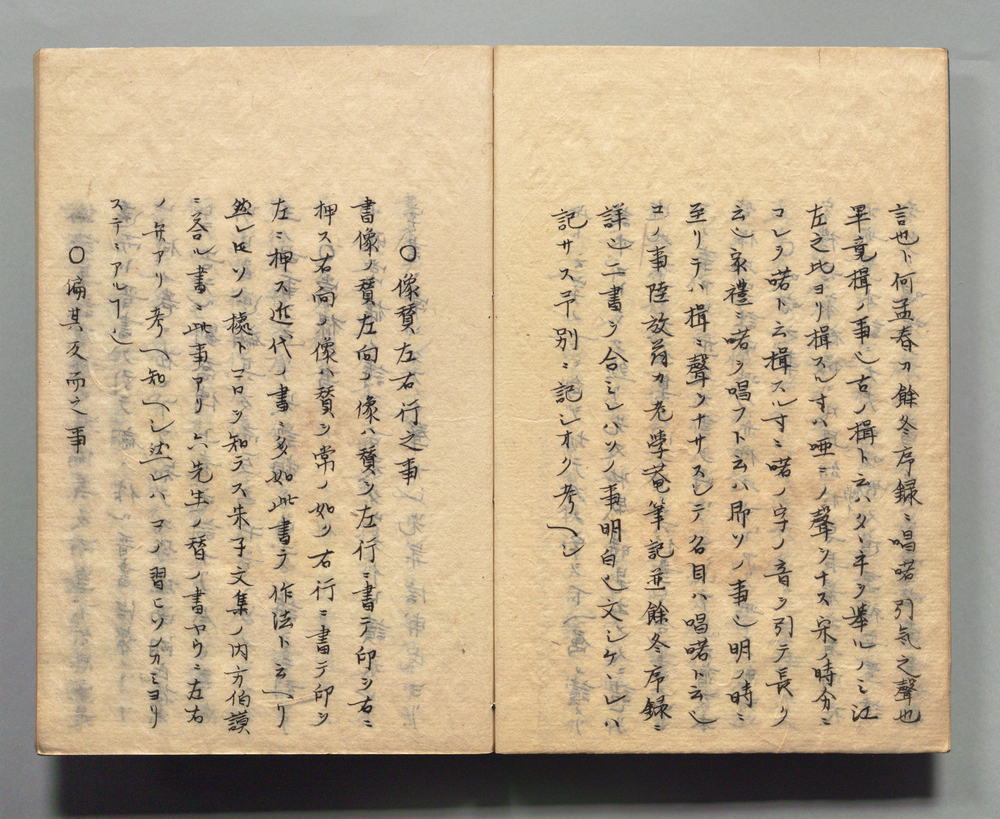 言也ト何孟春カ餘冬序録ニ唱喏引気之聲也
畢竟揖ノ事也古ノ揖ト云ハタヽ手ヲ挙ルノミ江
左之比ヨリ揖スルオハ唖ニノ聲ヲナス宋ノ時分ニ
コレヲ喏ト云揖スルオニ喏ノ字ノ音ヲ引テ長ク
云也家禮ニ喏ヲ唱フト云ハ即ソノ事也明ノ時ニ
至リテハ揖ニ聲ヲナサスシテ名目ハ唱喏ト云也
コノ事陸放翁カ老學菴筆記並餘冬序録ニ
詳也二書ヲ合ミレハソノ事明白也文シケヽレハ
記サス予別ニ記シオク考ヘシ
○像賛左右行之事
書像ノ賛左向ノ像ハ賛ヲ左行ニ書テ印ヲ右ニ
押ス右向ノ像ハ賛ヲ常ノ如ク右行ニ書テ印ヲ
左ニ押ス近代ノ書ニ多如此書テ作法ト云ヘリ
然レ𪜈ソノ據トコロヲ知ラス朱子文集ノ内方伯謨
ニ答ル書ニ此事アリ六先生ノ賛ノ書ヤウニ左右
ノ弁アリ考ヘ知ヘシ然レハコノ習ヒソノ分ミヨリ
ステニアルヿ也
○偏其反而之事